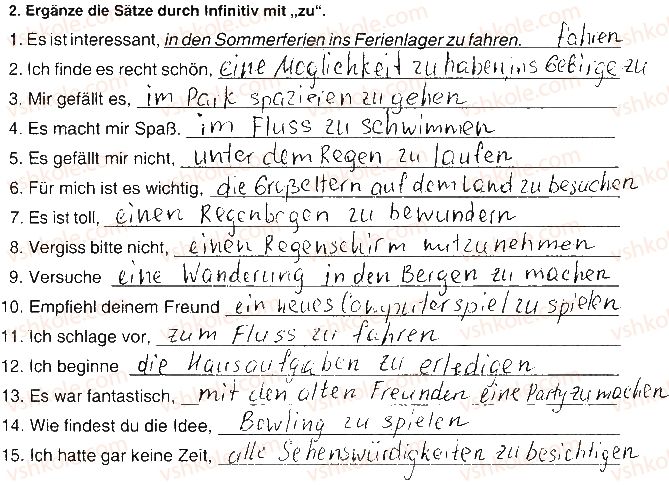 2. Ergänze die Sätze durch Infinitiv mit „zu“.
1. Es ist interessant, in den Sommerferien ins Ferienlager zu fahren. fahren
2. Ich finde es recht schön, eine Moglichkeit zu haben, ins Gebirge zu
3. Mir gefällt es, im Park spazieren zu gehen
4. Es macht mir Spaß. im Fluss zu schwimmen
5. Es gefällt mir nicht, unter dem Regen zu laufen
6. Für mich ist es wichtig, die Großeltern auf dem Land zu besuchen
7. Es ist toll, einen Regenbogen zu bewundern
8. Vergiss bitte nicht, einen Regenschirm mitzunehmen
9. Versuche eine Wanderung in den Bergen zu machen
10. Empfiehl deinem Freund ein neues Computerspiel zu spielen
11. Ich schlage vor, zum Fluss zu fahren
12. Ich beginne die Hausaufgaben zu erledigen
13. Es war fantastisch, mit den alten Freunden eine Party zu machen
14. Wie findest du die Idee, Bowling zu spielen
15. Ich hatte gar keine Zeit, alle Sehenswürdigkeiten zu besichtigen